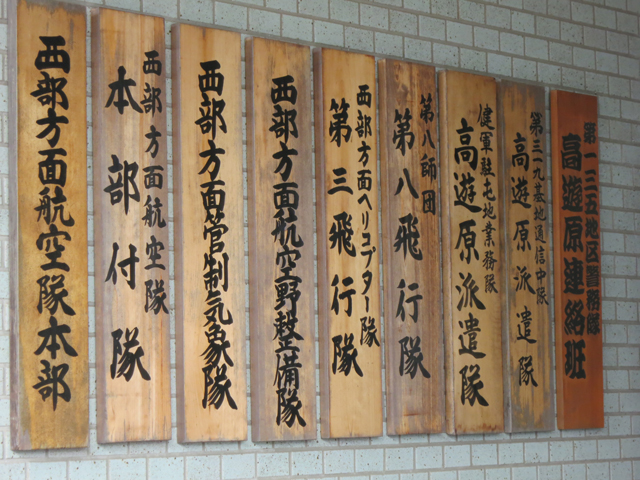 西部方面航空隊本部
西部方面航空隊
本部付隊
西部方面管制気象隊
西部方面航空野整備隊
西部方面ヘリコプター隊
第三飛行隊
第八師団
第八飛行隊
健軍駐屯地業務隊
高遊原派遣隊
第三一九基地通信中隊
高遊原派遣隊
第一三五地区警務隊
高遊原連絡班